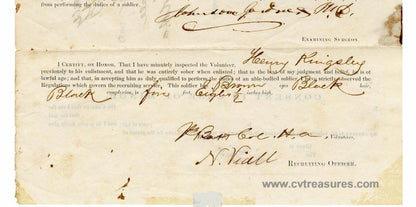 from performing the duties of a soldier.
M.D.
EXAMINING SURGEON.
I CERTIFY, ON HONOR, That I have minutely inspected the Volunteer, Henry Kingsley
previously to his enlistment, and that he was entirely sober when enlisted; that to the best of my judgment and belief, he is of
lawful age; and that, in accepting him as duly qualified to perform the duties of an able-bodied soldier, I have strictly observed the
Regulations which govern the recruiting service. This soldier has Brown eyes Black hair,
Black complexion, is five feet inches high.
Col. H. A. Volunteers,
N. Viall
RECRUITING OFFICER.
www.cvtreasures.com